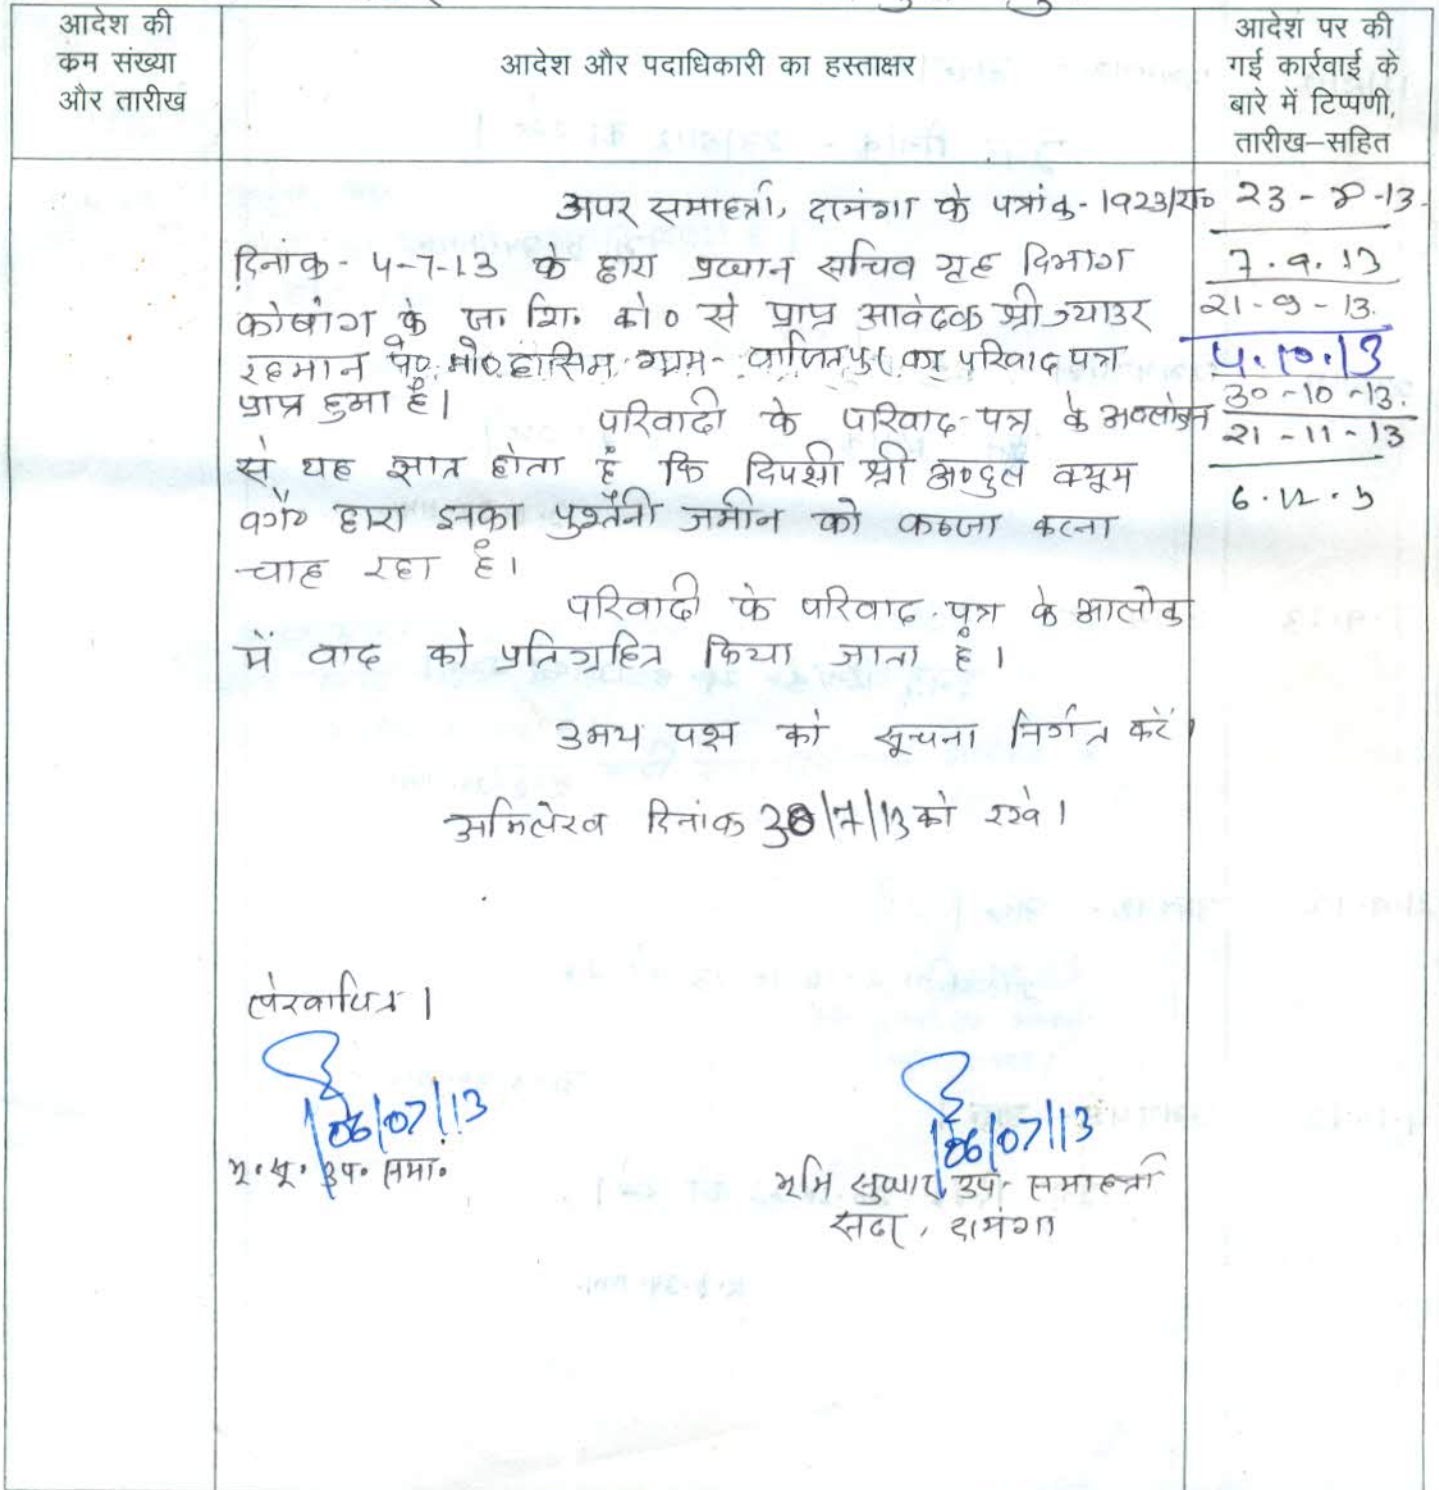 आदेश की
कम संख्या
और तारीख
आदेश और पदाधिकारी का हस्ताक्षर
आदेश पर की
गई कार्रवाई के
बारे में टिप्पणी,
तारीख–सहित
अपर समाहर्त्ता, दरभंगा के पत्रांक - 1923/रा०
दिनांक - 4-7-13 के द्वारा प्रधान सचिव गृह विभाग
कोषांग के ज. शि. को० से प्राप्त आवेदक श्री ज्याउर
रहमान पे० मो० हासिम ग्राम - वाजितपुर का परिवाद पत्र
प्राप्त हुआ है।
परिवादी के परिवाद-पत्र के अवलोकन
से यह ज्ञात होता है कि विपक्षी श्री अब्दुल कयूम
वगै० द्वारा इनका पुस्तैनी जमीन को कब्जा करना
चाह रहा है।
परिवादी के परिवाद-पत्र के आलोक
में वाद को प्रतिग्रहित किया जाता है।
उभय पक्ष को सूचना निर्गत करें।
अभिलेख दिनांक 30/7/13 को रखें।
लेखापित।
06/07/13
भू. सू. उप. समा.
06/07/13
भूमि सुधार उप समाहर्त्ता
सदर, दरभंगा
23 - 8 -13.
7.9.13
21-9-13.
4.10.13
30-10-13.
21-11-13